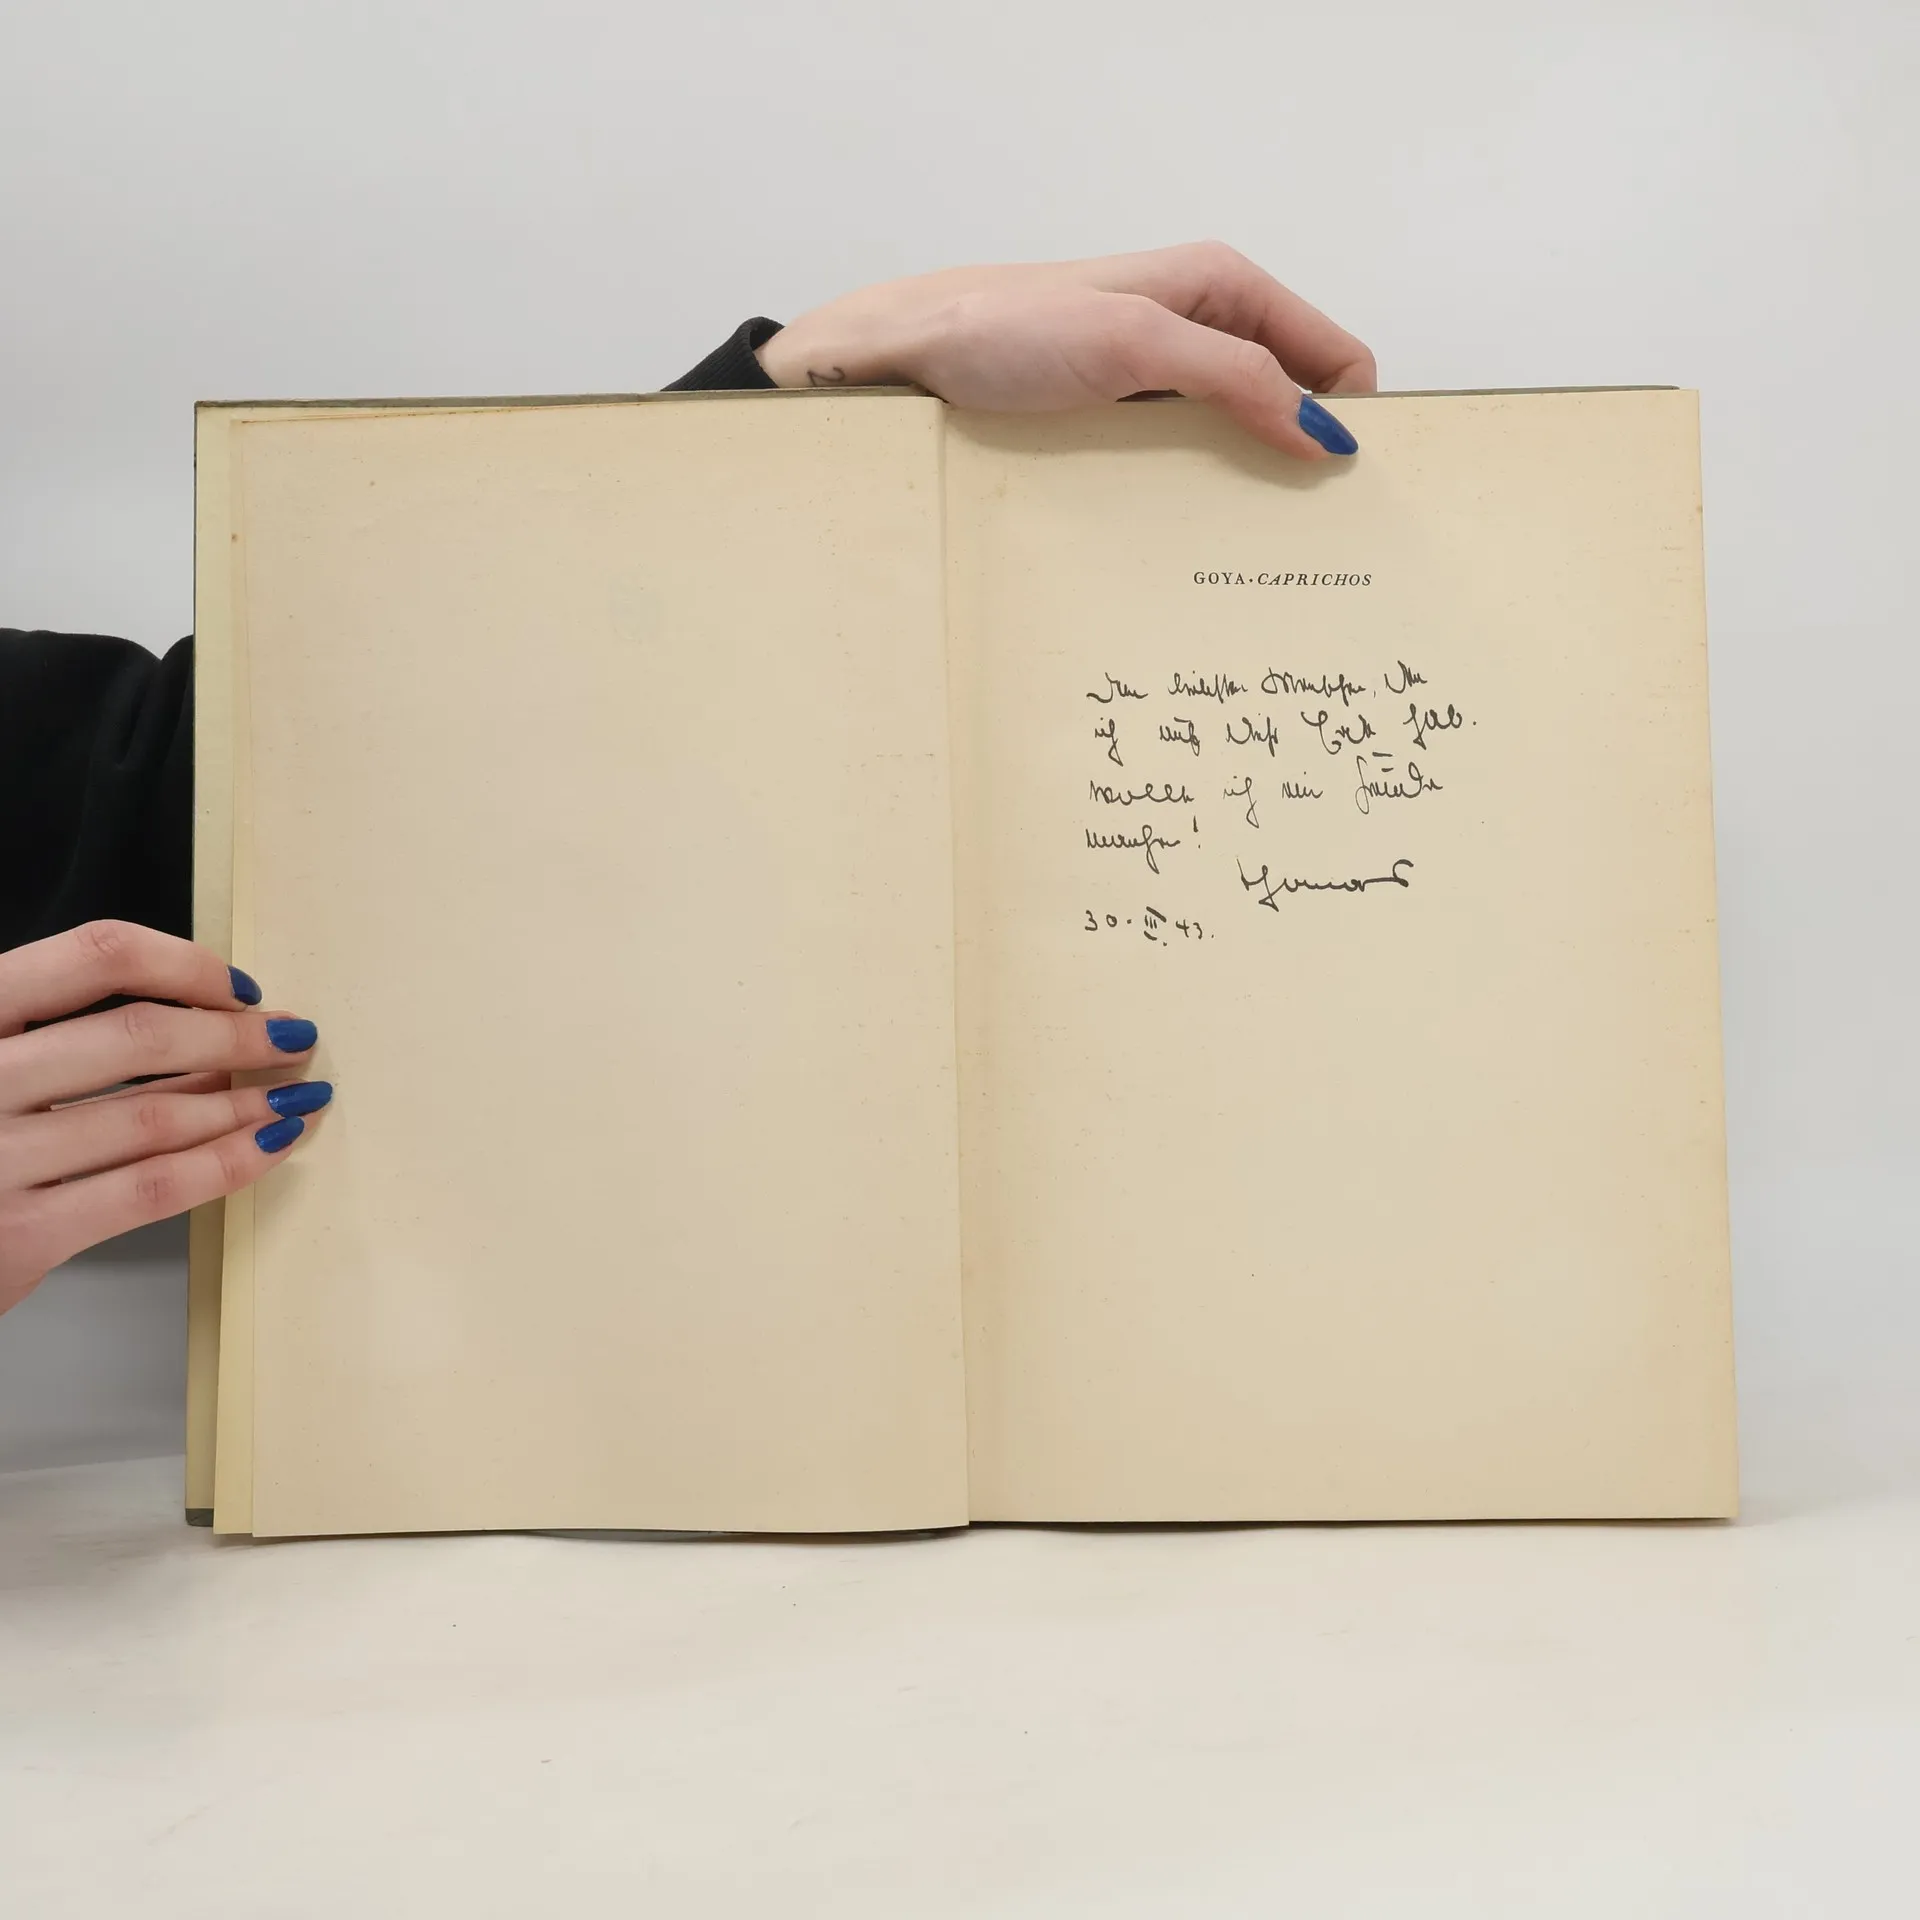 GOYA·CAPRICHOS
Dem liebsten Menschen, den
ich auf dieser Erde hab.
wollt ich eine Freude
machen!
30. III. 43.